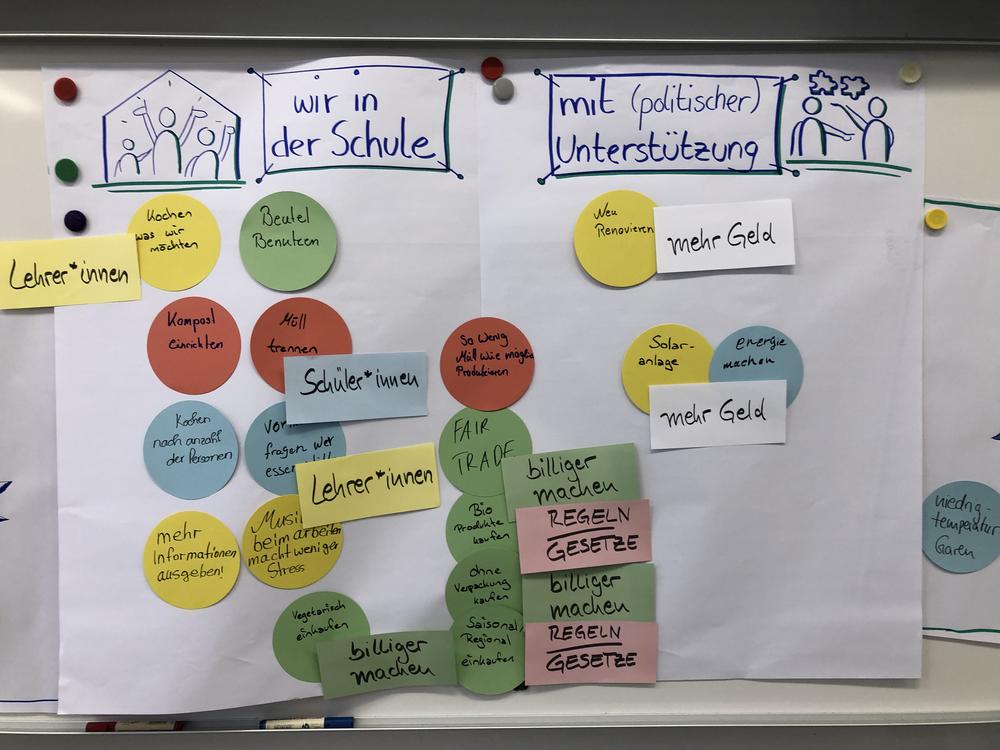 wir in
der Schule
mit (politischer)
Unterstützung
Kochen
was wir
möchten
Lehrer*innen
Beutel
Benutzen
Neu
Renovieren
mehr Geld
Kompost
einrichten
Müll
trennen
Schüler*innen
So wenig
Müll wie möglich
Produzieren
Solar-
anlage
energie
machen
mehr Geld
Kochen
nach anzahl
der Personen
fragen wer
essen
Lehrer*innen
FAIR
TRADE
billiger
machen
REGELN
GESETZE
mehr
Informationen
ausgeben!
Musik
beim arbeiten
macht weniger
Stress
Bio
Produkte
kaufen
ohne
Verpackung
kaufen
billiger
machen
REGELN
GESETZE
Vegetarisch
einkaufen
billiger
machen
Saisonal,
Regional
einkaufen
niedrig-
temperatur
Garen